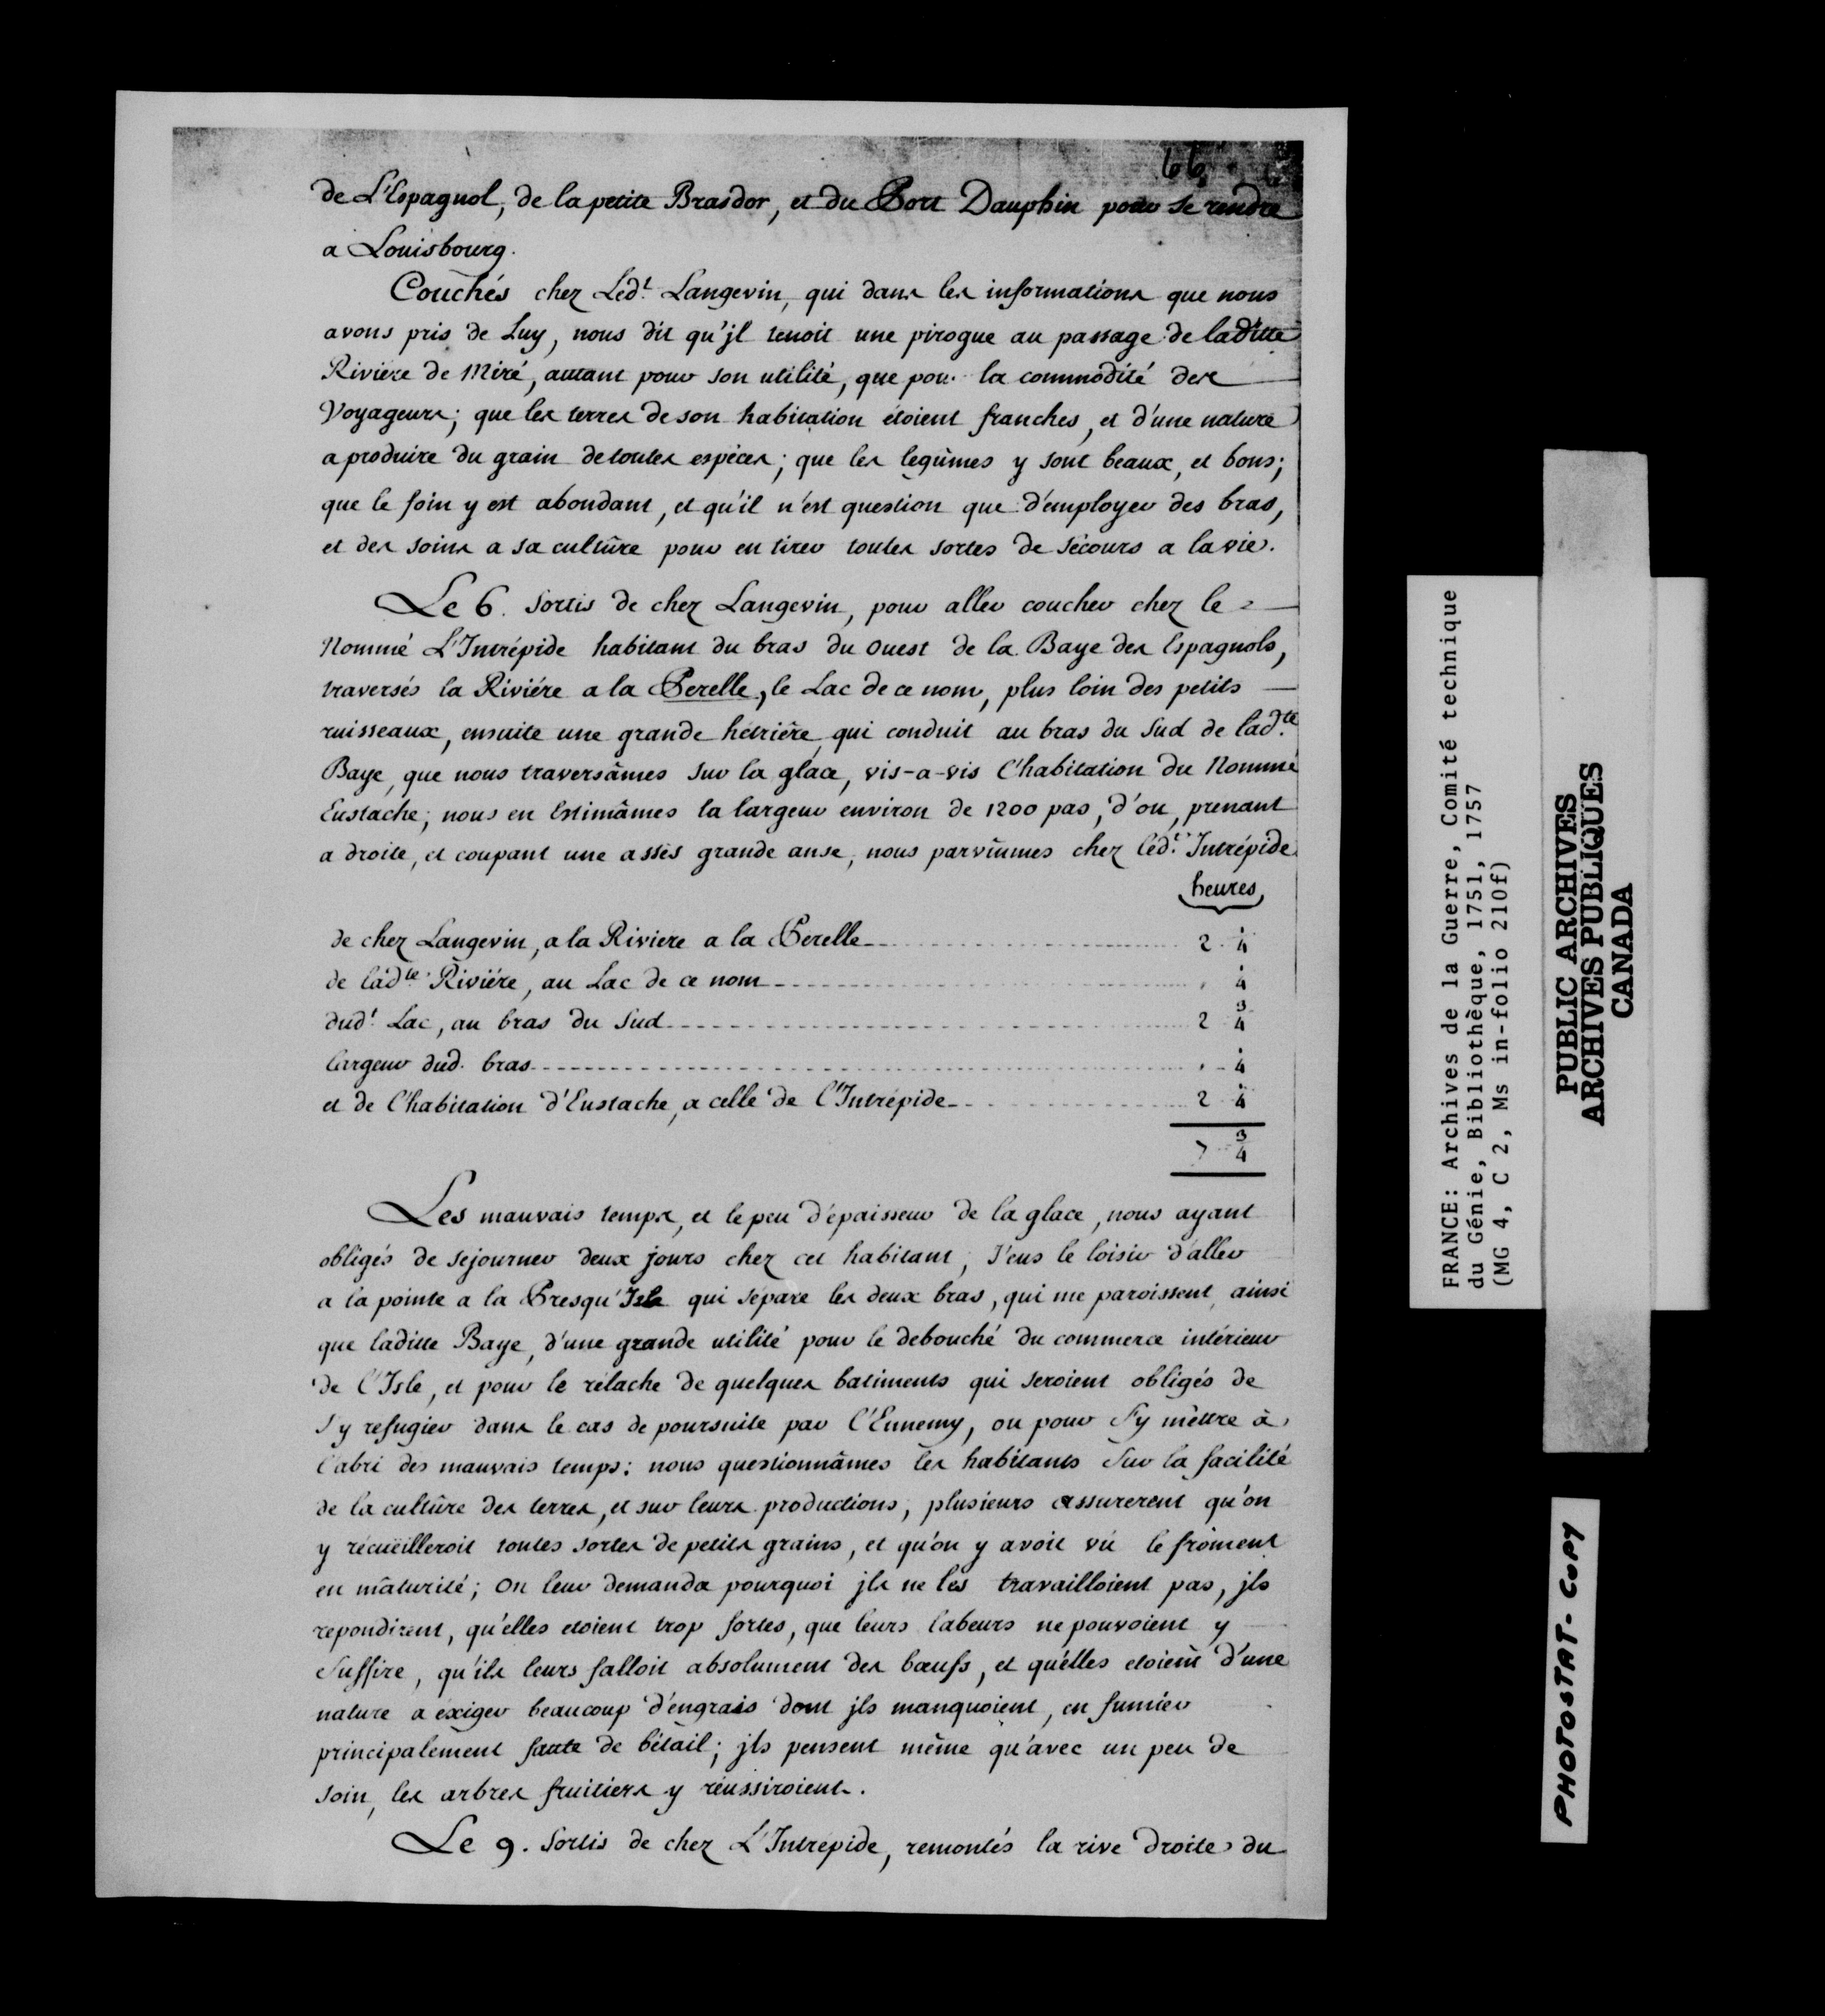 66.
de L'Espagnol, de la petite Brasdor, et du Port Dauphin pour se rendre
a Louisbourg.
Couchés chez Led.t Langevin, qui dans les informations que nous
avons pris de Luy, nous dit qu'jl tenoit une pirogue au passage de laditte
Riviere de Miré, autant pour son utilité, que pour la commodité des
Voyageurs; que les terres de son habitation étoient franches, et d'une nature
a produire du grain de toutes espèces; que les legûmes y sont beaux, et bons;
que le foin y est abondant, et qu'il n'est question que d'employer des bras,
et des soins a sa cultûre pour en tirer toutes sortes de sécours a la vie.
Le 6. Sortis de chez Langevin, pour aller coucher chez le
Nommé L'Intrépide habitant du bras du Ouest de la Baye des Espagnols,
traversés la Riviére a la Perelle, le Lac de ce nom, plus loin des petits
ruisseaux, ensuite une grande hétrière, qui conduit au bras du Sud de lad.te
Baye, que nous traversâmes sur la glace, vis-a-vis l'habitation du Nommé
Eustache; nous en Estimâmes la largeur environ de 1200 pas, d'ou, prenant
a droite, et coupant une assès grande anse, nous parvînmes chez léd.t Intrépide
heures
de chez Langevin, a la Riviere a la Perelle 2 1/4
de lad.te Riviére, au Lac de ce nom , 1/4
dud.t Lac, au bras du Sud 2 3/4
largeur dud. bras , 1/4
et de l'habitation d'Eustache, a celle de l'Intrépide 2 1/4
7 3/4
Les mauvais temps, et le peu d'épaisseur de la glace, nous ayant
obligés de sejourner deux jours chez cet habitant, J'eus le loisir d'aller
a la pointe a la Presqu'Isle qui sépare les deux bras, qui me paroissent, ainsi
que laditte Baye, d'une grande utilité pour le debouché du commerce intérieur
de l'Isle, et pour le rélache de quelques batiments qui seroient obligés de
s'y refugier dans le cas de poursuite par l'Ennemy, ou pour s'y mèttre à
l'abri des mauvais temps: nous questionnâmes les habitants sur la facilité
de la cultûre des terres, et sur leurs productions, plusieurs assurerent qu'on
y récuëilleroit toutes sortes de petits grains, et qu'on y avoit vû le froment
en mâturité; On leur demanda pourquoi jls ne les travailloient pas, jls
repondirent, qu'elles etoient trop fortes, que leurs labeurs ne pouvoient y
suffire, qu'ils leurs falloit absolument des bœufs, et qu'elles etoient d'une
nature a éxiger beaucoup d'engrais dont jls manquoient, en fumier
principalement faute de bétail; jls pensent même qu'avec un peu de
soin, les arbres fruitiers y réussiroient.
Le 9. Sortis de chez L'Intrépide, remontés la rive droite du
FRANCE: Archives de la Guerre, Comité technique
du Génie, Bibliothèque, 1751, 1757
(MG 4, C 2, Ms in-folio 210f)
PUBLIC ARCHIVES
ARCHIVES PUBLIQUES
CANADA
PHOTOSTAT-COPY